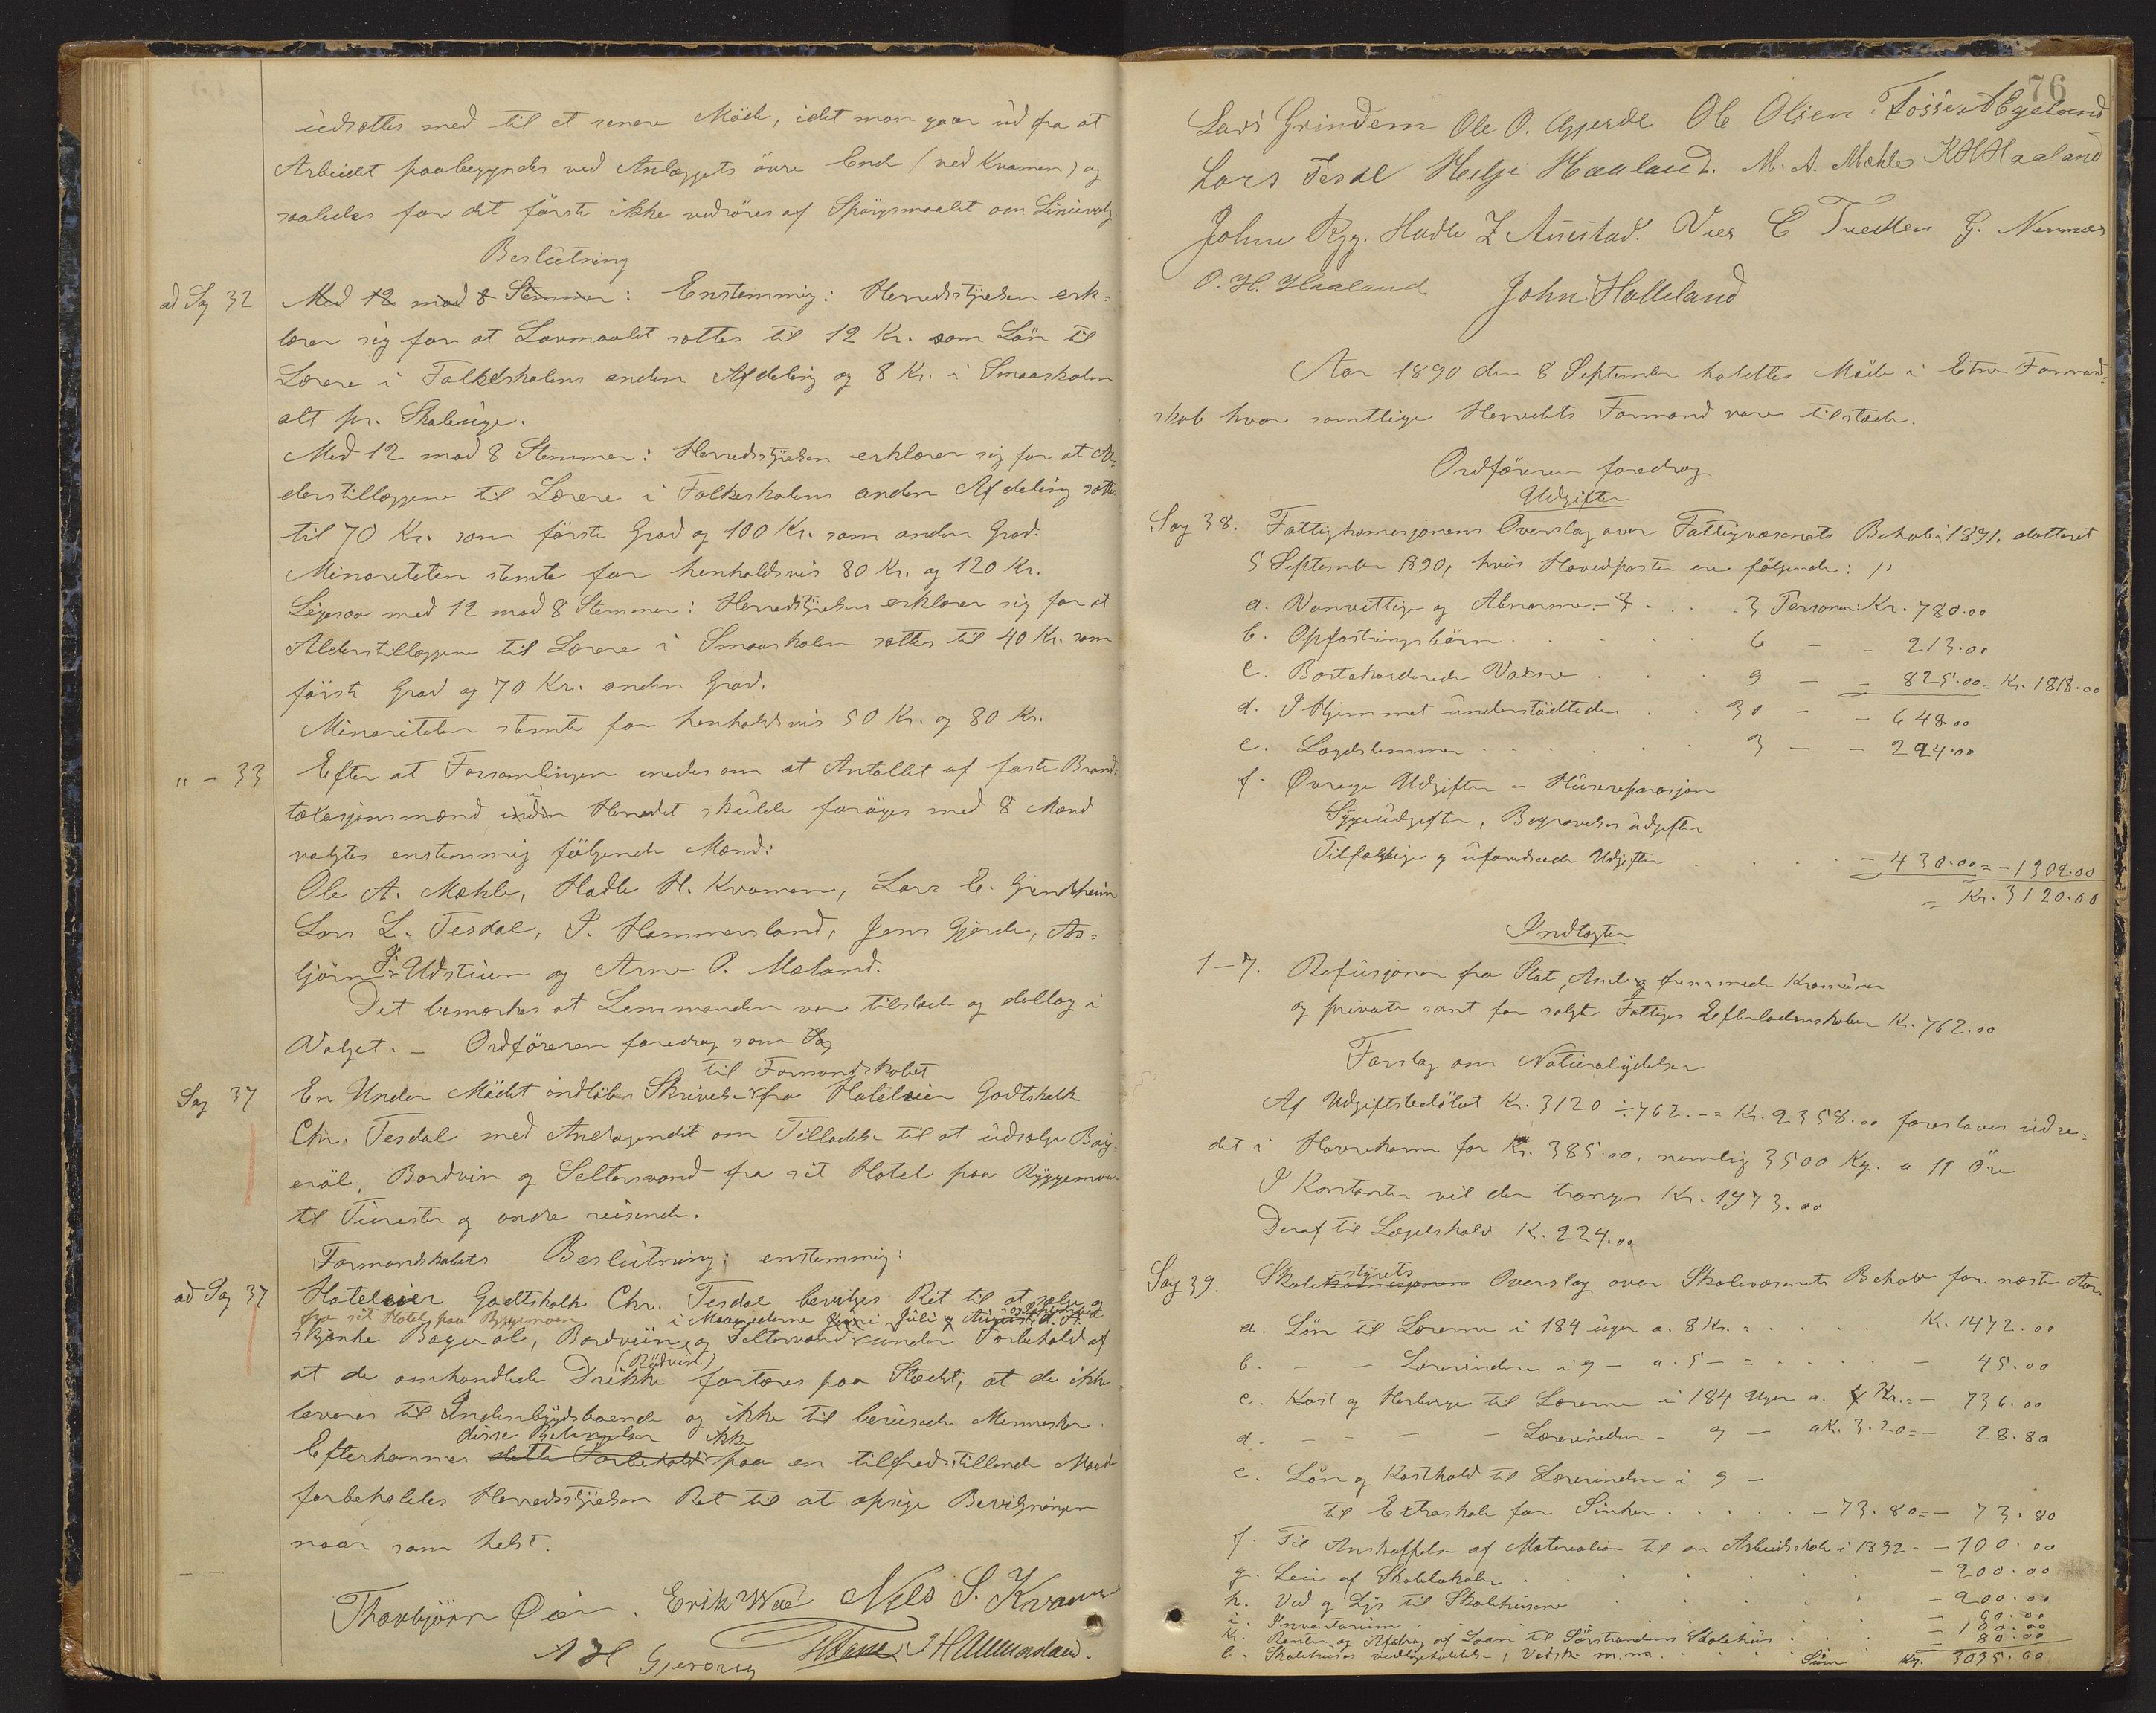 udsættes med til et senere Möde, idet man gaar ud fra at
Arbeidet paabegyndes ved Anlæggets övre Ende (ved Kvamen) og
saaledes for det förste ikke vedröres af Spörgsmaalet om Linievalg.
Beslutning
ad Sag 32 Med 12 mod 8 Stemmer: Enstemmig: Herredsstyrelsen erk-
lærer sig for at Lavmaalet sættes til 12 Kr. som Lön til
Lærere i Folkeskolens anden Afdeling og 8 Kr. i Smaaskolen
alt pr. Skoleuge.
Med 12 mod 8 Stemmer: Herredsstyrelsen erklærer sig for at Al-
derstillæggene til Lærere i Folkeskolens anden Afdeling sættes
til 70 Kr. som förste Grad og 100 Kr. som anden Grad.
Minoriteten stemte for henholdsvis 80 Kr. og 120 Kr.
Ligesaa med 12 mod 8 Stemmer: Herredsstyrelsen erklærer sig for at
Alderstillæggene til Lærere i Smaaskolen sættes til 40 Kr. som
förste Grad og 70 Kr. anden Grad.
Minoriteten stemte for henholdsvis 50 Kr. og 80 Kr.
" - 33 Efter at Forsamlingen enedes om at Antallet af faste Brand-
taxasjonsmænd i Herredet skulde foröges med 8 Mænd
valgtes enstemmig fölgende Mænd:
Ole A. Mæhle, Hadle H. Kvamen, Lars E. Grindheim
Lars L. Tesdal, I. Hammersland, Jens Gjerde, As-
björn J. Udstuen og Arne O. Mæland.
Det bemærkes at Lensmanden var tilstede og deltog i
Valget. - Ordföreren foredrog som Sag
til Formandskabet
Sag 37 En Under Mödet indlöben Skrivelse fra Hoteleier Godtskalk
Chr. Tesdal med Andragendet om Tilladelse til at udsælge Bay-
eröl, Bordvin og Seltersvand fra sit Hotel paa Ryggemoen
til Turister og andre reisende.
Formandskabets Beslutning; enstemmig:
ad Sag 37 Hoteleier Godtskalk Chr. Tesdal bevilges Ret til at sælge og
fra sit Hotel paa Ryggemoen i Maanederne Juni Juli og August
skjænke Bayeröl, Bordviin og Seltervand under Forbehold af
(Rödvin)
at de omhandlede Drikke fortæres paa Stedet, at de ikke
leveres til Indenbygdsboende og ikke til berusede Mennesker.
disse Betingelser ikke
Efterkommes dette Forbehold paa en tilfredsstillende Maade
forbeholdes Herredsstyrelsen Ret til at opsige Bevilgningen
naar som helst.
Thorbjörn Öien. Erik Nils S. Kvamen
A H Gjerde I Hammersland.
76
Lars Grindem Ole O. Gjerde Ole Olsen
Lars Tesdal Helje Haaland. M. A. Mæhle K H Haaland
Johne Ryg. Hadle Z Austad. C Tvedten G.
O. H. Haaland John Halleland
Aar 1890 den 8 September holdtes Möde i Etne Formand-
skab hvor samtlige Herredets Formænd vare tilstede.
Ordföreren foredrog
Udgifter
Sag 38. Fattigkomisjonens Overslag over Fattigvæsenets Behov i 1891, datteret
5 September 1890, hvis Hovedposter ere fölgende:
a. Vanvittige og Abnorme - 3 Personer: Kr. 780.00
b. Opfostringsbörn 6 - - 213.00
c. Bortakorderede Voksne 9 - - 825.00 = Kr. 1818.00
d. I Hjemmet understöttede 30 - - 648.00
e. Lægdslemmer 3 - - 224.00
f. Övrige Udgifter - Husereparasjon
Sygeudgifter, Begravelsesudgifter
Tilfældige og uforudseede Udgifter - 430.00 = - 1302.00
= Kr. 3120.00
Indtægter
1-7. Refusjoner fra Stat, Amt og fremmede Kommuner
og private samt for solgte Fattiges Efterladenskaber Kr. 762.00
Forslag om Naturalydelser
Af Udgiftsbelöbet Kr. 3120 ÷ 762.- = Kr. 2358.00 foreslaaes udre-
det i Havrekorn for Kr. 385.00, nemlig 3500 Kg. a 11 Öre
I Kontanter vil der trænges Kr. 1973.00
Deraf til Lægdshold K. 224.00
styrets
Sag 39. Skolekomisjonens Overslag over Skolevæsenets Behov for næste Aar
a. Lön til Lærerne i 184 uger a. 8 Kr. = K. 1472.00
b. - - Lærerinderne i 9 - a. 5 - = - 45.00
c. Kost og Herberge til Lærerne i 184 Uger a. 4 Kr. = - 736.00
d. - - - - Lærerinden - 9 - a K. 3.20 = - 28.80
e. Lön og Kosthold til Lærerinden i 9 -
til Extraskole for Sinker - 73.80 = - 73.80
f. Til Anskaffelse af Materialier til en Arbeidsskole i 1892 - - 100.00
g. Leie af Skolelokaler - 200.00
h. Ved og Lys til Skolehusene - 200.00
i. Inventarium - 60.00
k. Renter og Afdrag af Laan til Sörstrandens Skolehus - 100.00
l. Skolehuses vedligeholdelse, Vadsk m.m. - 80.00
Sum Kr. 3095.60